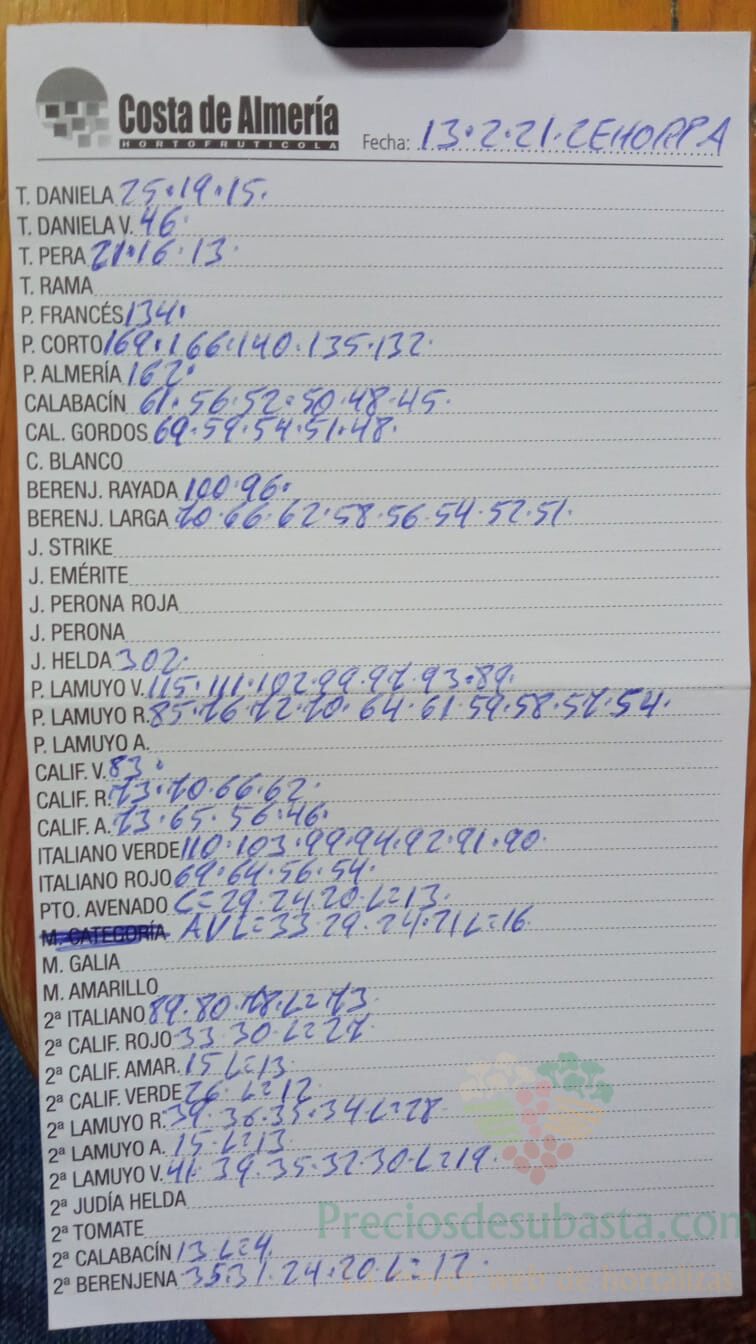 Costa de Almería
HORTOFRUTICOLA
Fecha: 13·2·21·ZEHORPA
T. DANIELA 25·19·15·
T. DANIELA V. 46·
T. PERA 21·16·13·
T. RAMA
P. FRANCÉS 134·
P. CORTO 169·166·140·135·132·
P. ALMERÍA 162·
CALABACÍN 61·56·52·50·48·45·
CAL. GORDOS 69·59·54·51·48·
C. BLANCO
BERENJ. RAYADA 100·96·
BERENJ. LARGA 70·66·62·58·56·54·52·51·
J. STRIKE
J. EMÉRITE
J. PERONA ROJA
J. PERONA
J. HELDA 302·
P. LAMUYO V. 115·111·102·99·97·93·89·
P. LAMUYO R. 85·76·72·70·64·61·59·58·57·54·
P. LAMUYO A.
CALIF. V. 83·
CALIF. R. 73·70·66·62·
CALIF. A. 73·65·56·46·
ITALIANO VERDE 110·103·99·94·92·91·90·
ITALIANO ROJO 69·64·56·54·
PTO. AVENADO C=29·24·20·L=13·
M. CATEGORÍA AVL=33·29·24·21L=16·
M. GALIA
M. AMARILLO
2ª ITALIANO 89·80·78·L=73·
2ª CALIF. ROJO 33·30·L=27·
2ª CALIF. AMAR. 15 L=13·
2ª CALIF. VERDE 26·L=12
2ª LAMUYO R. 39·36·35·34L=28
2ª LAMUYO A. 15·L=13
2ª LAMUYO V. 41·39·35·32·30·L=19·
2ª JUDÍA HELDA
2ª TOMATE
2ª CALABACÍN 13 L=4
2ª BERENJENA 35 31·24·20 L=12·
Preciosdesubasta.com
web de hortalizas